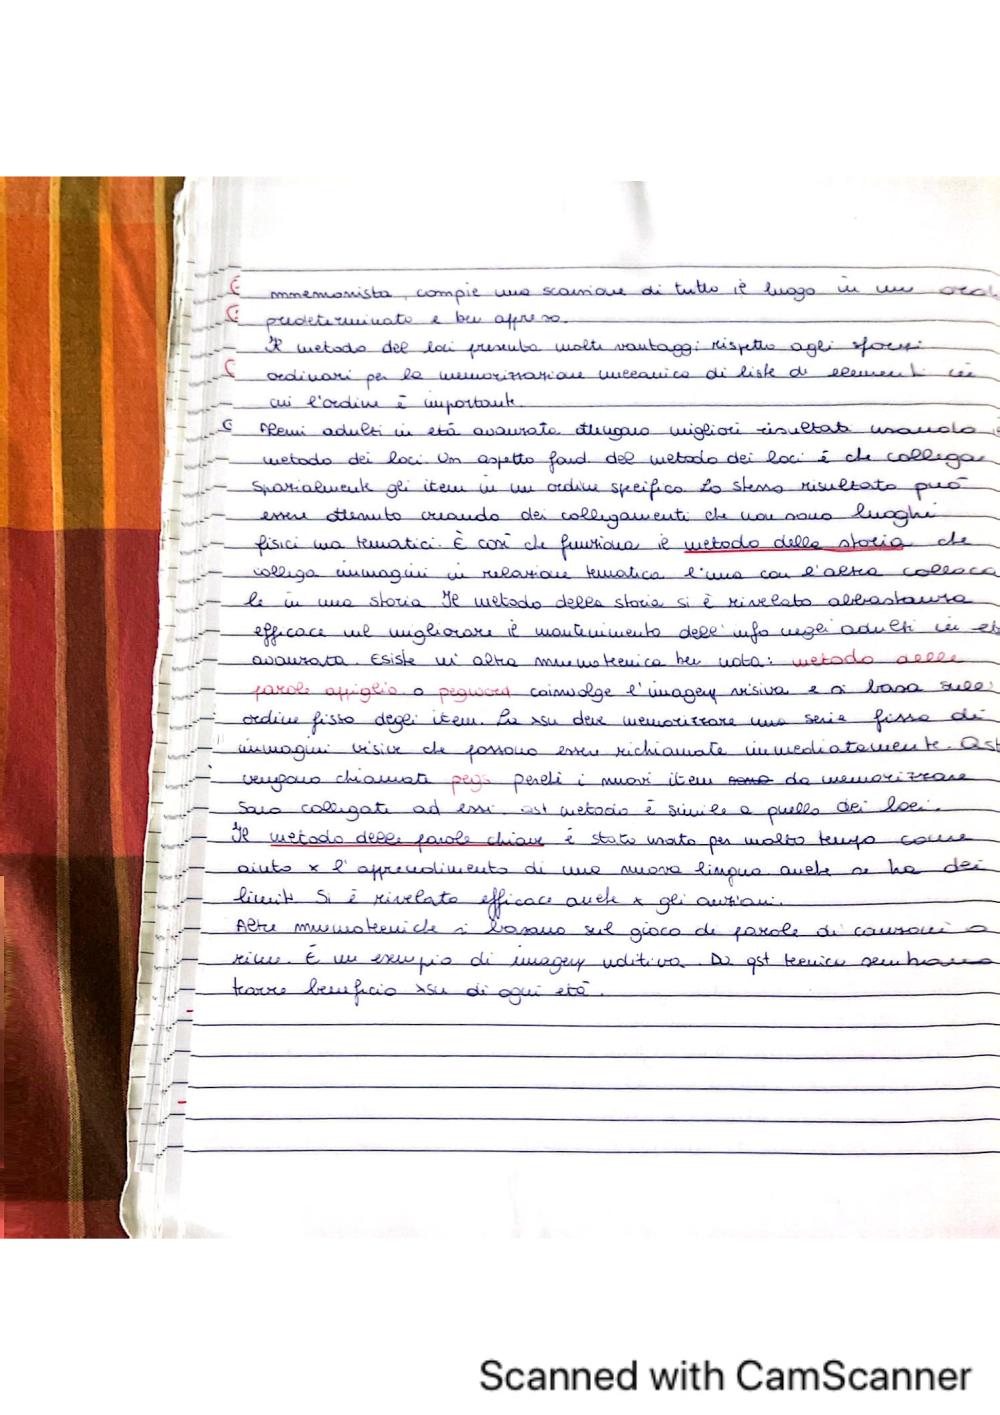 mnemonista, compie una scansione di tutto il luogo in un
predeterminato e ben appreso.
Il metodo dei loci presenta molti vantaggi rispetto agli sforzi
ordinari per la memorizzazione meccanica di liste di elementi in
cui l'ordine è importante.
Alcuni adulti in età avanzata ottengono migliori risultati usando
metodo dei loci. Un aspetto fond del metodo dei loci è che collega
spazialmente gli item in un ordine specifico. Lo stesso risultato può
essere ottenuto creando dei collegamenti che non sono luoghi
fisici ma tematici. È così che funziona il metodo della storia che
collega immagini in relazione tematica l'una con l'altra colloca
le in una storia. Il metodo della storia si è rivelato abbastanza
efficace nel migliorare il mantenimento dell'info negli adulti in et
avanzata. Esiste un'altra mnemotecnica ben nota: metodo delle
parole appiglio o pegword coinvolge l'imagery visiva e si basa sull'
ordine fisso degli item. La xsu deve memorizzare una serie fissa di
immagini visive che possono essere richiamate immediatamente. Qst
vengono chiamate pegs perché i nuovi item sono da memorizzare
sono collegati ad essi. Qst metodo è simile a quello dei loci.
Il metodo delle parole chiave è stato usato per molto tempo come
aiuto x l'apprendimento di una nuova lingua anche se ha dei
limiti. Si è rivelato efficace anche x gli anziani.
Altre mnemotecniche si basano sul gioco di parole di canzoni o
rime. È un esempio di imagery uditiva. Da qst tecnica sembrano
trarre beneficio xsu di ogni età.
Scanned with CamScanner